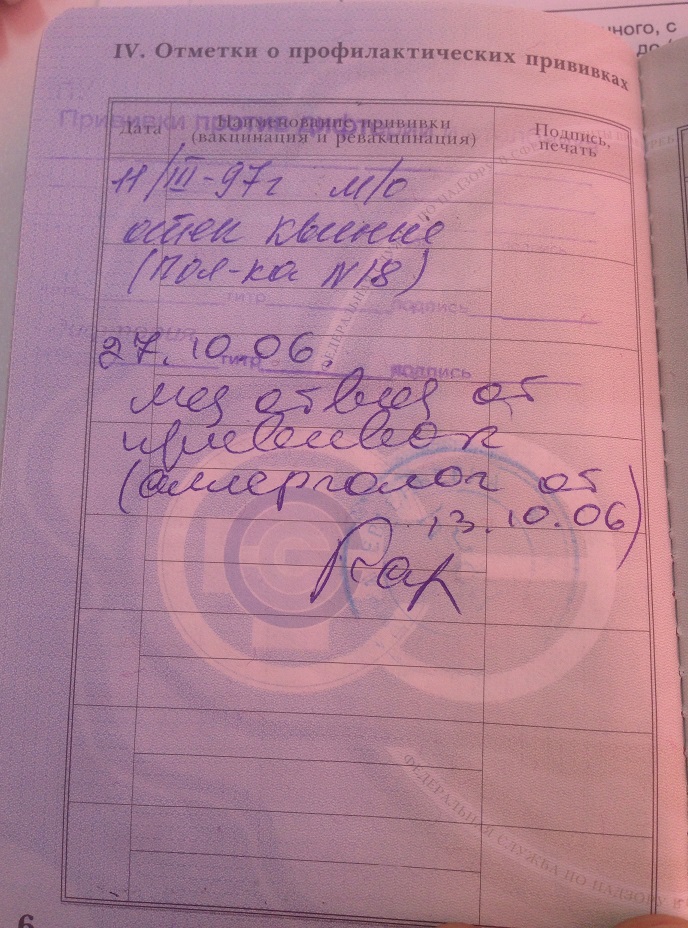 ного, с
до
IV. Отметки о профилактических прививках
Дата
Наименование прививки
(вакцинация и ревакцинация)
Подпись,
печать
Прививки против дифтерии
11/III-97г м/о
отек квинке
(пол-ка N18)
титр подпись
27.10.06.
титр подпись
мед отвод от
прививок
(аллерголог от
13.10.06)
ФЕДЕРАЛЬНАЯ СЛУЖБА ПО НАДЗОРУ В
6